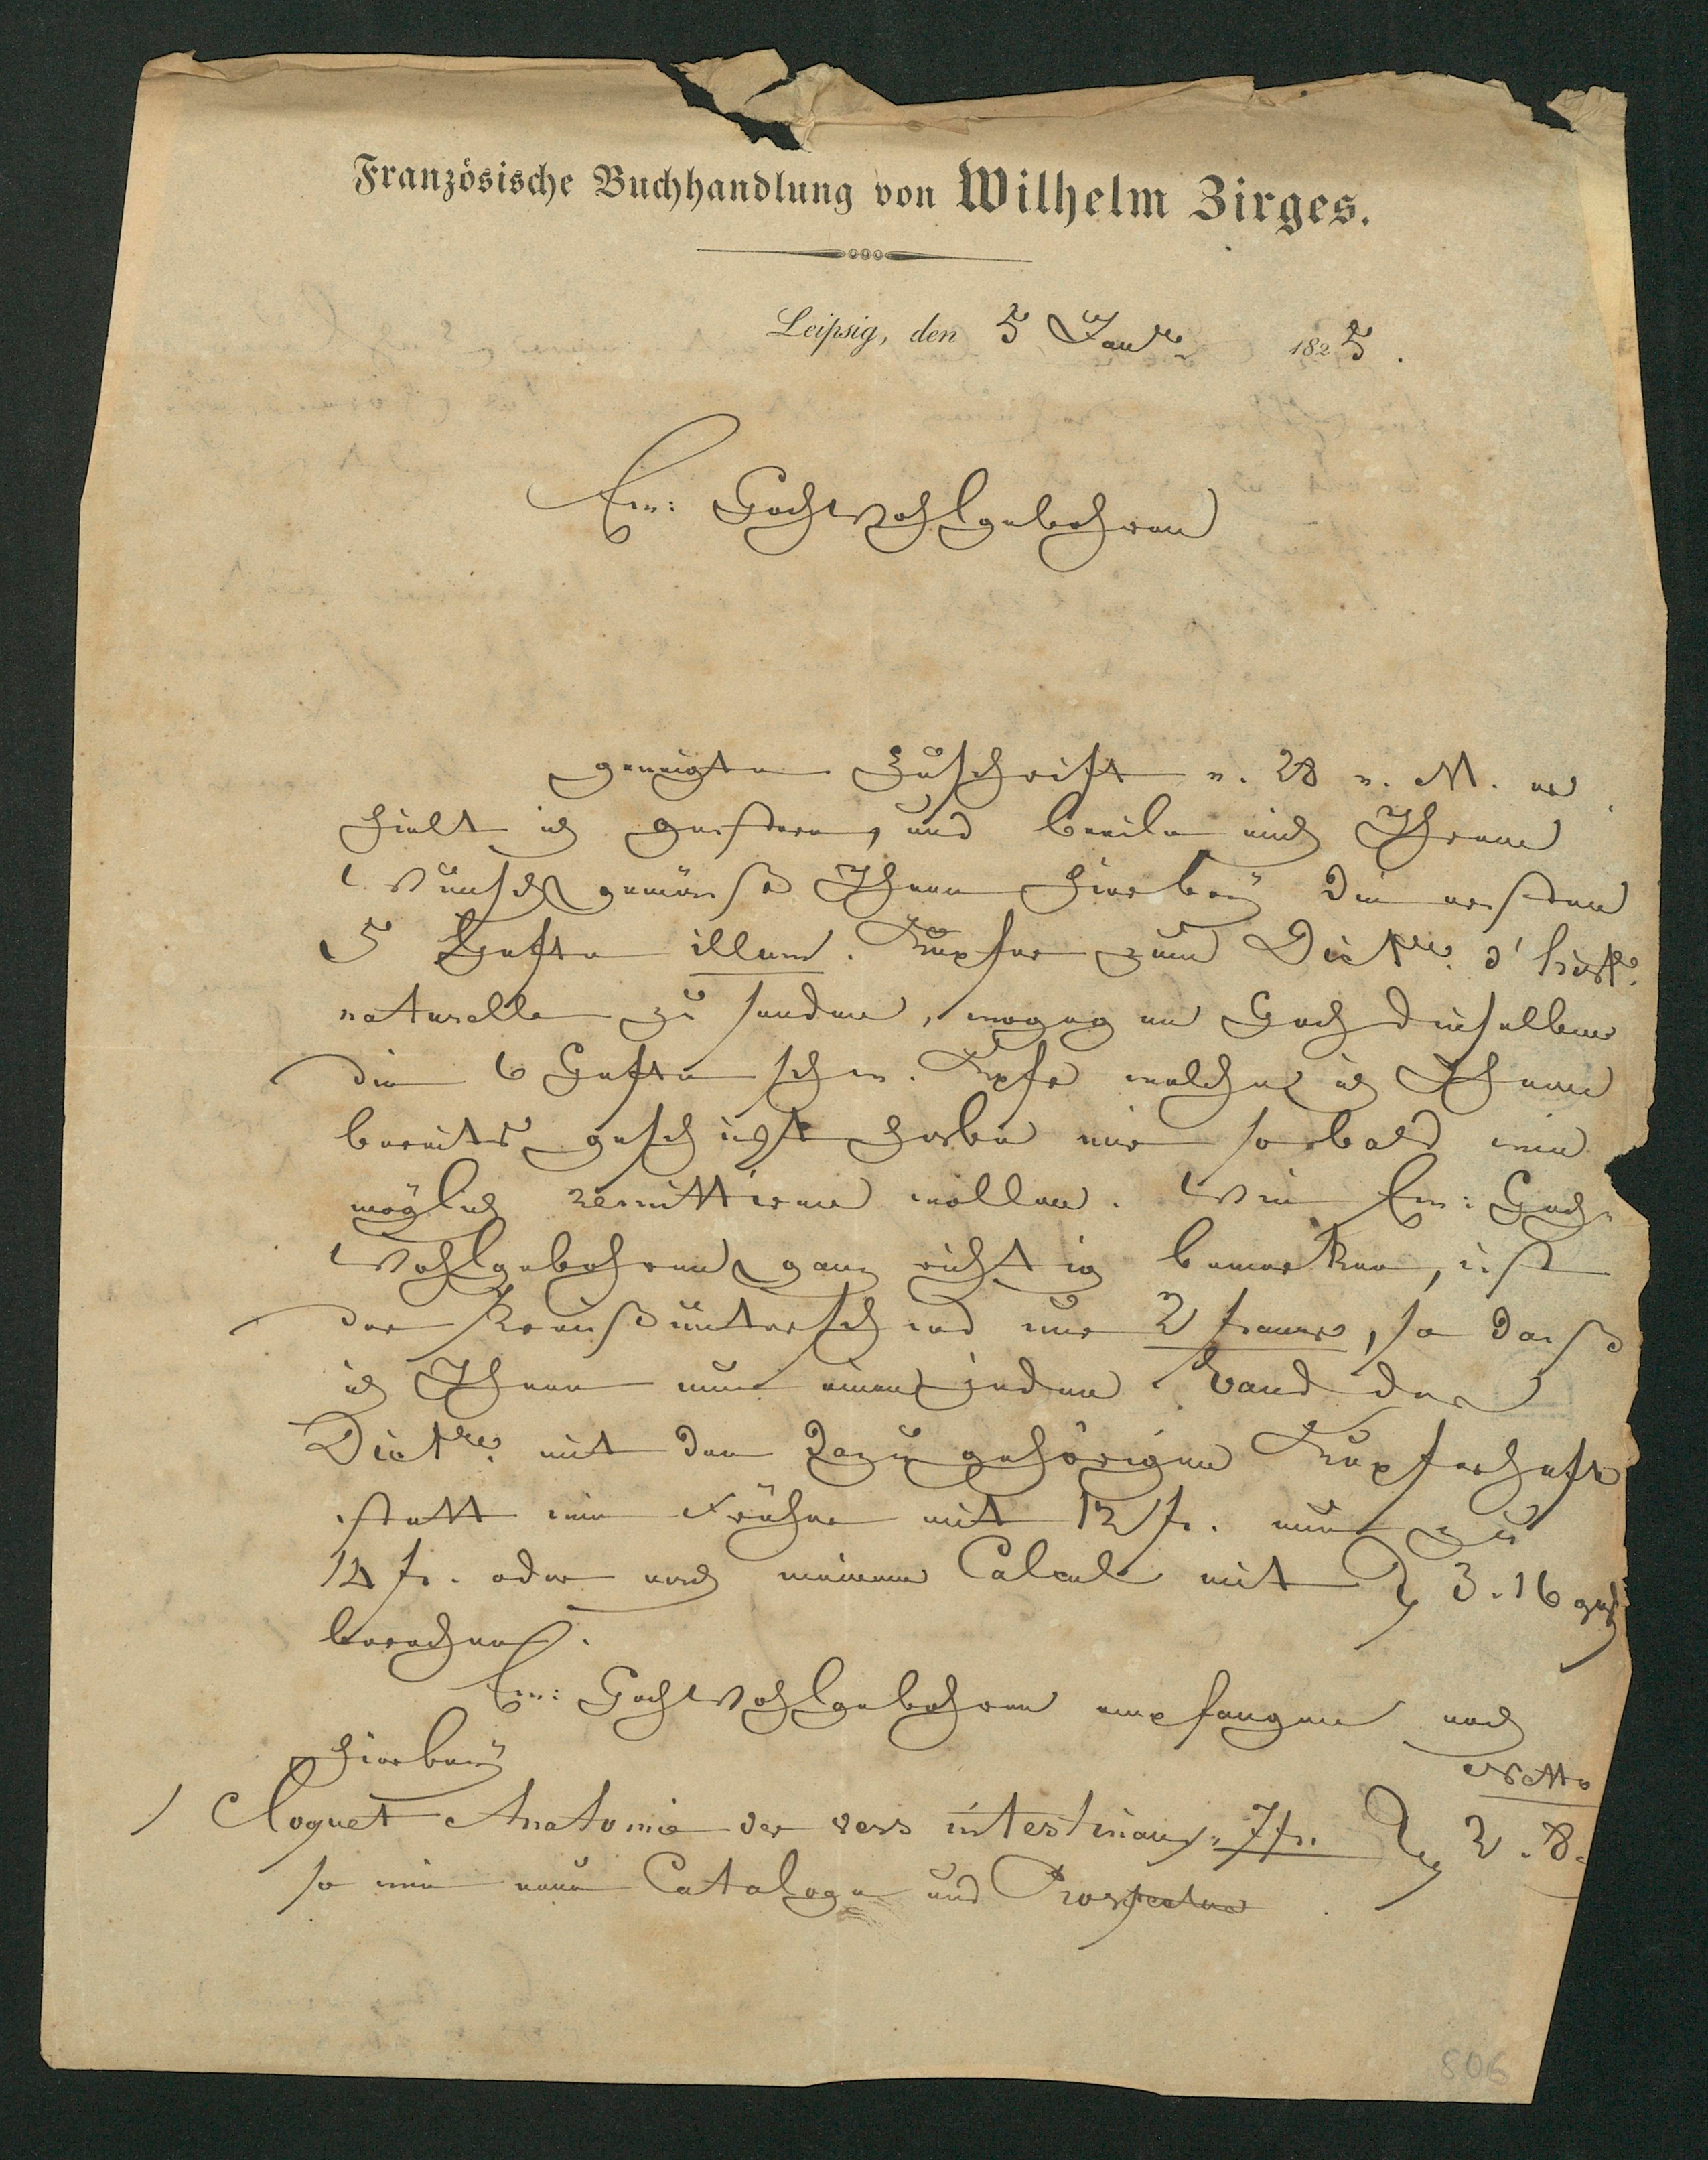 Französische Buchhandlung von Wilhelm Zirges.
Leipsig, den 5 Janr. 1825.
Ew: HochWohlgebohren
geneigte Zuschrift v. 28 v. M. er
hielt ich gestern, und beeile mich Ihrem
Wunsche gemäß Ihnen hierbey die ersten
5 Hefte illum. Kupfer zum Dictre. d'histre.
naturelle zu senden, wogegen Hochdieselben
die 6 Hefte schw. Kupfr welche ich Ihnen
bereits geschickt habe mir sobald wie
möglich remittiren wollen. Wie Ew: Hoch-
Wohlgebohren ganz richtig bemerken, ist
der Preißunterschied nur 2 francs, so daß
ich Ihnen nun einen jeden Band des
Dictre. mit dem dazu gehörigen Kupferheft
statt wie früher mit 12 fr. nun zu
14 fr. oder nach meinem Calcul mit 3. 16 gr
berechne.
Ew: HochWohlgebohren empfangen noch
hierbey
Netto
1 Cloquet Anatomie des vers intestinaux 7 fr. 2. 8.
so wie neue Cataloge und Prospectus
806